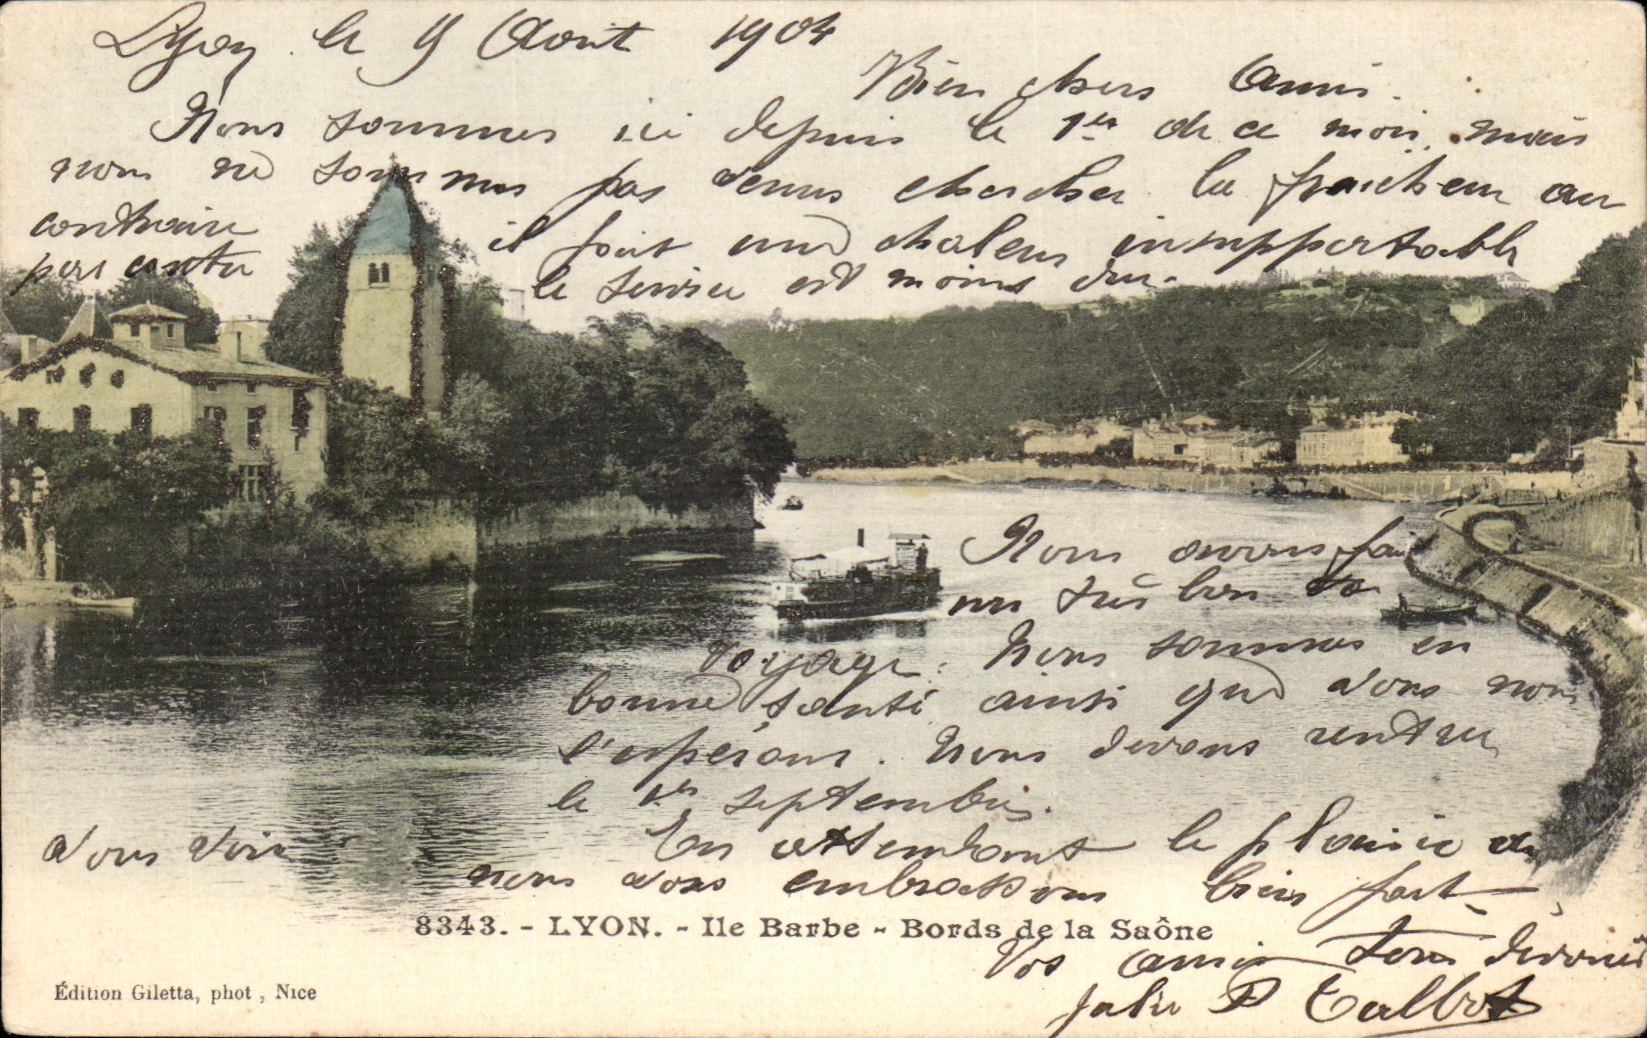 Lyon le 9 Aout 1904
Bien chers Amis.
Nous sommes ici depuis le 1er de ce mois, mais
nous ne sommes pas venus chercher la fraicheur au
contraire il fait une chaleur insupportable
par contre le service est moins dur.
Nous avons fait
un très bon
voyage. Nous sommes en
bonne santé ainsi que vous nous
l'espérons. Nous devons rentrer
le 1er septembre.
En attendant le plaisir de
vous voir
nous vous embrassons bien fort
8343. - LYON. - Ile Barbe - Bords de la Saône
Vos amis tous dévoués
Édition Giletta, phot, Nice
Talbot